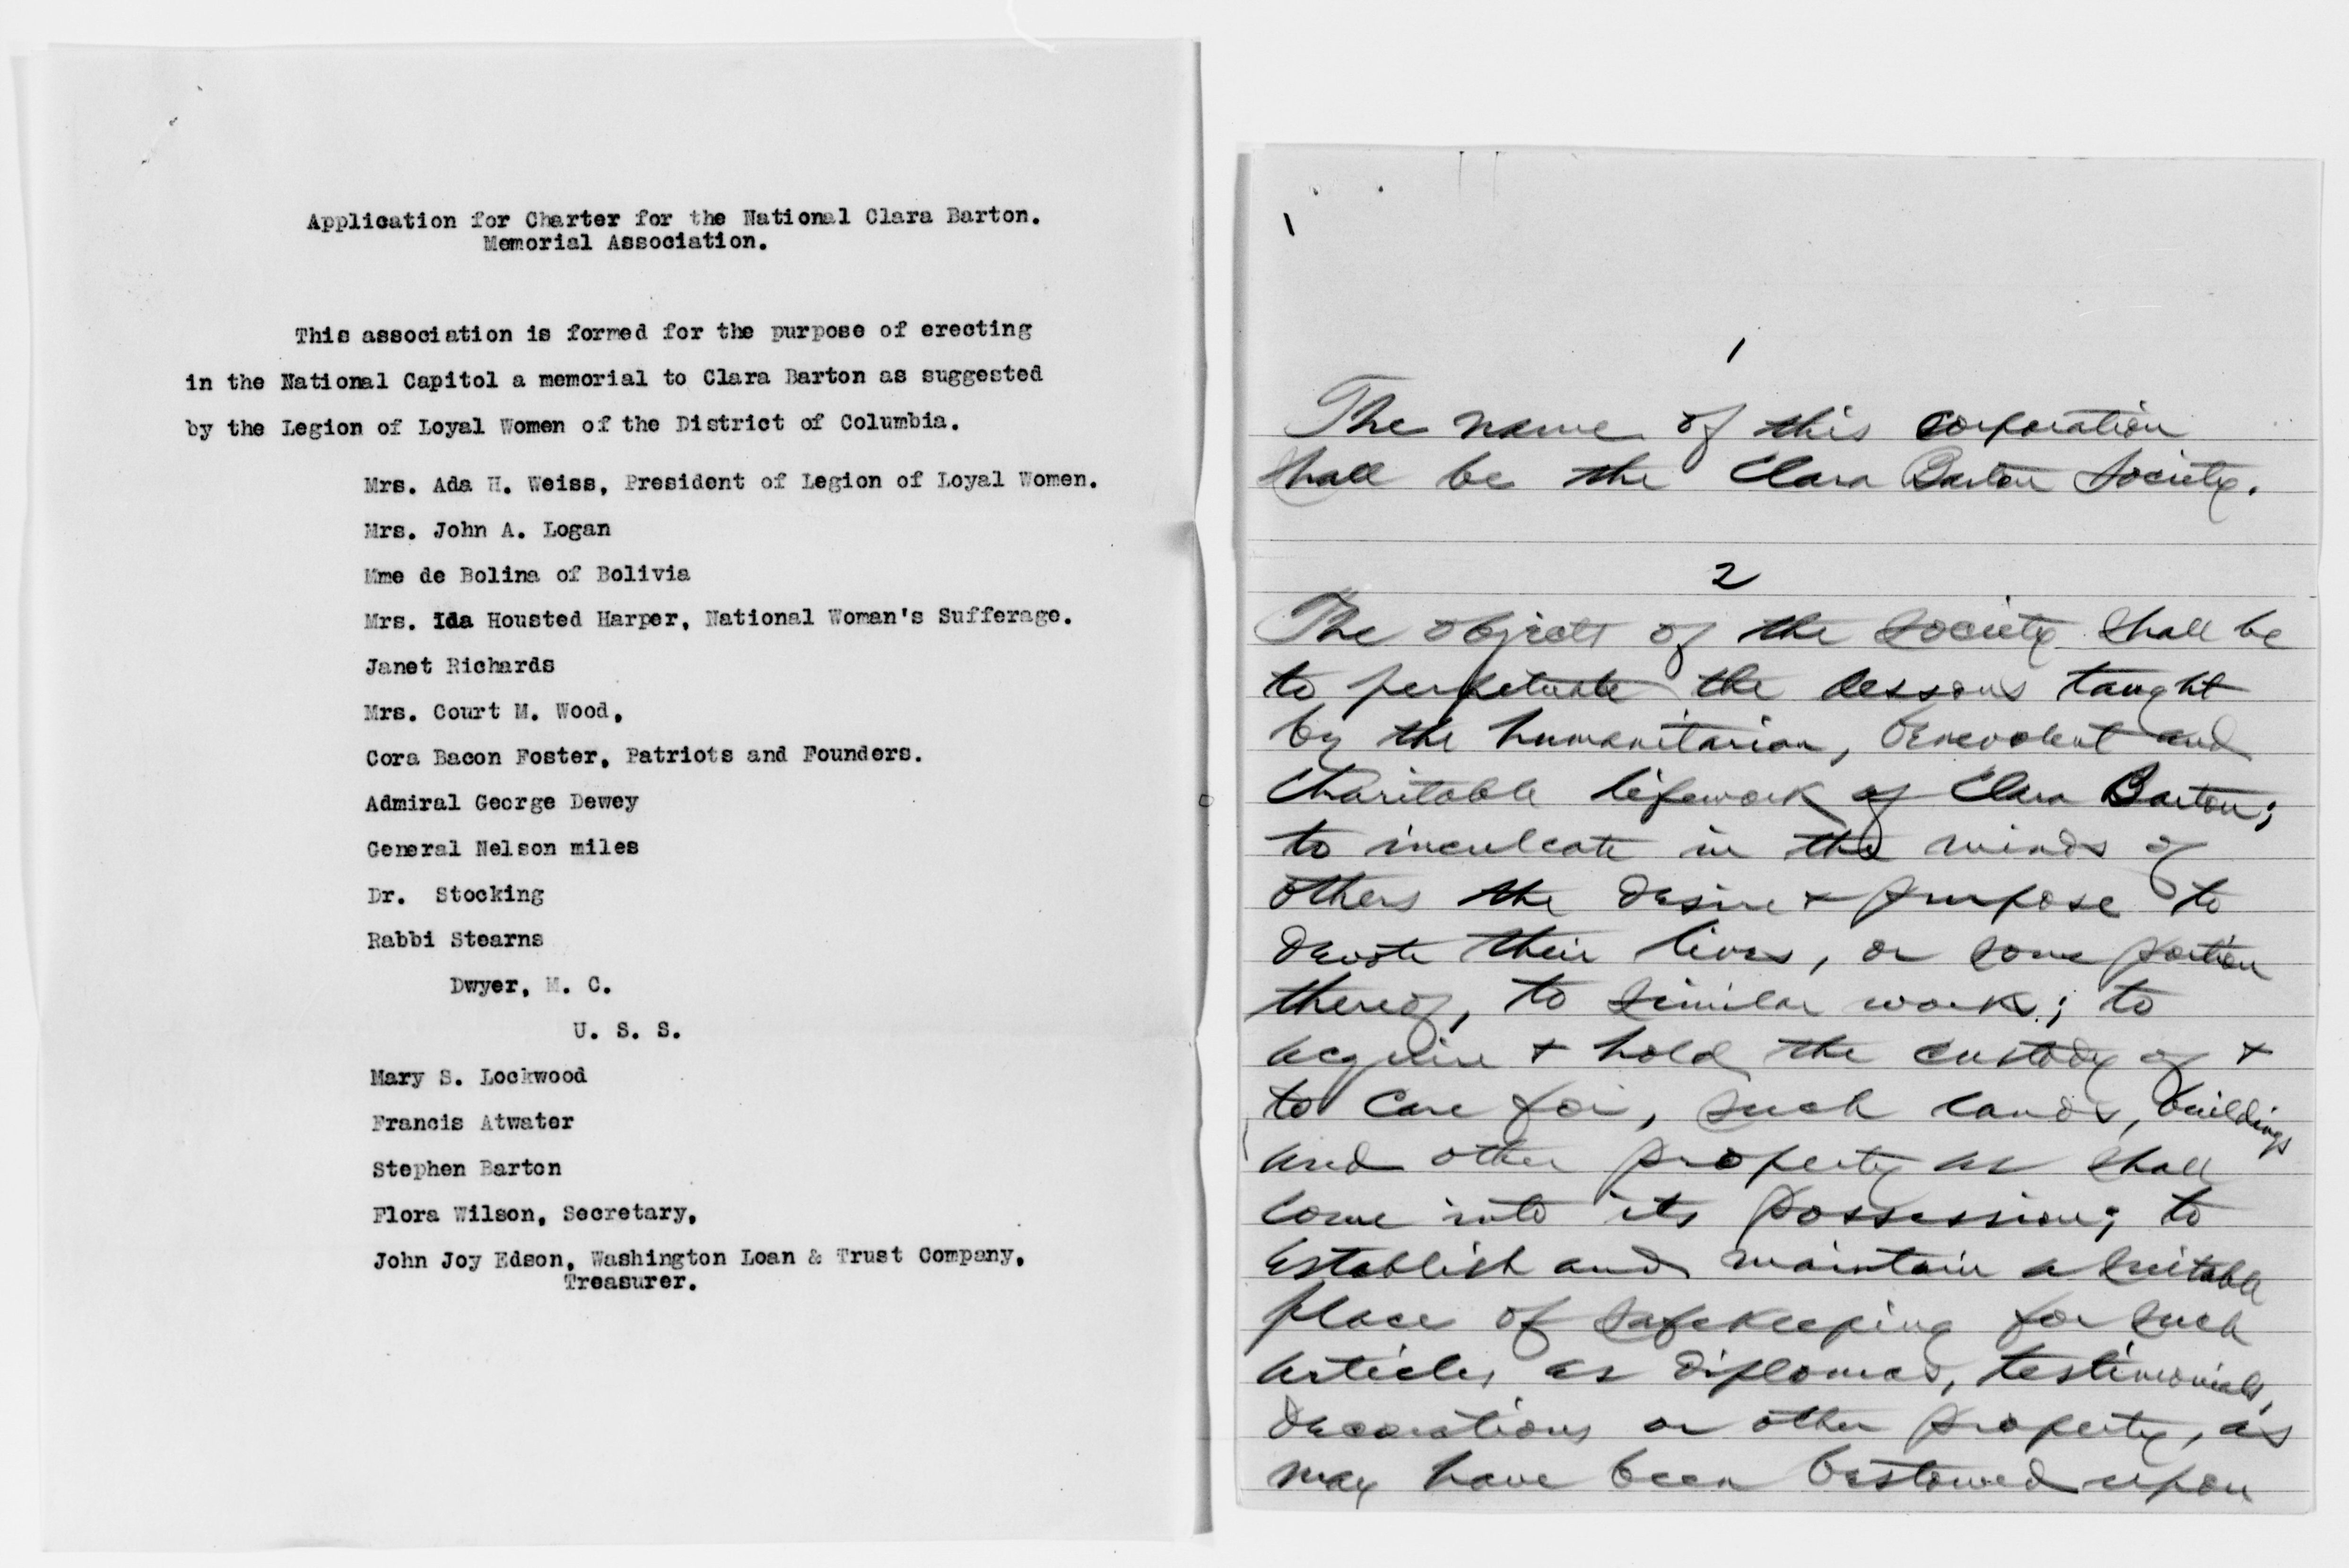 Application for Charter for the National Clara Barton.
Memorial Association.
This association is formed for the purpose of erecting
in the National Capitol a memorial to Clara Barton as suggested
by the Legion of Loyal Women of the District of Columbia.
Mrs. Ada H. Weiss, President of Legion of Loyal Women.
Mrs. John A. Logan
Mme de Bolina of Bolivia
Mrs. Ida Housted Harper, National Woman's Sufferage.
Janet Richards
Mrs. Court M. Wood,
Cora Bacon Foster, Patriots and Founders.
Admiral George Dewey
General Nelson miles
Dr. Stocking
Rabbi Stearns
Dwyer, M. C.
U. S. S.
Mary S. Lockwood
Francis Atwater
Stephen Barton
Flora Wilson, Secretary,
John Joy Edson, Washington Loan & Trust Company,
Treasurer.
1
The name of this corporation
shall be the Clara Barton Society.
2
The objects of the Society shall be
to perpetuate the lessons taught
by the humanitarian, benevolent and
charitable lifework of Clara Barton;
to inculcate in the minds of
others the desire & purpose to
devote their lives, or some portion
thereof, to similar work; to
acquire & hold the custody of &
to care for, such lands, buildings
and other property as shall
come into its possession; to
establish and maintain a suitable
place of safekeeping for such
articles as diplomas, testimonials,
decorations or other property, as
may have been bestowed upon